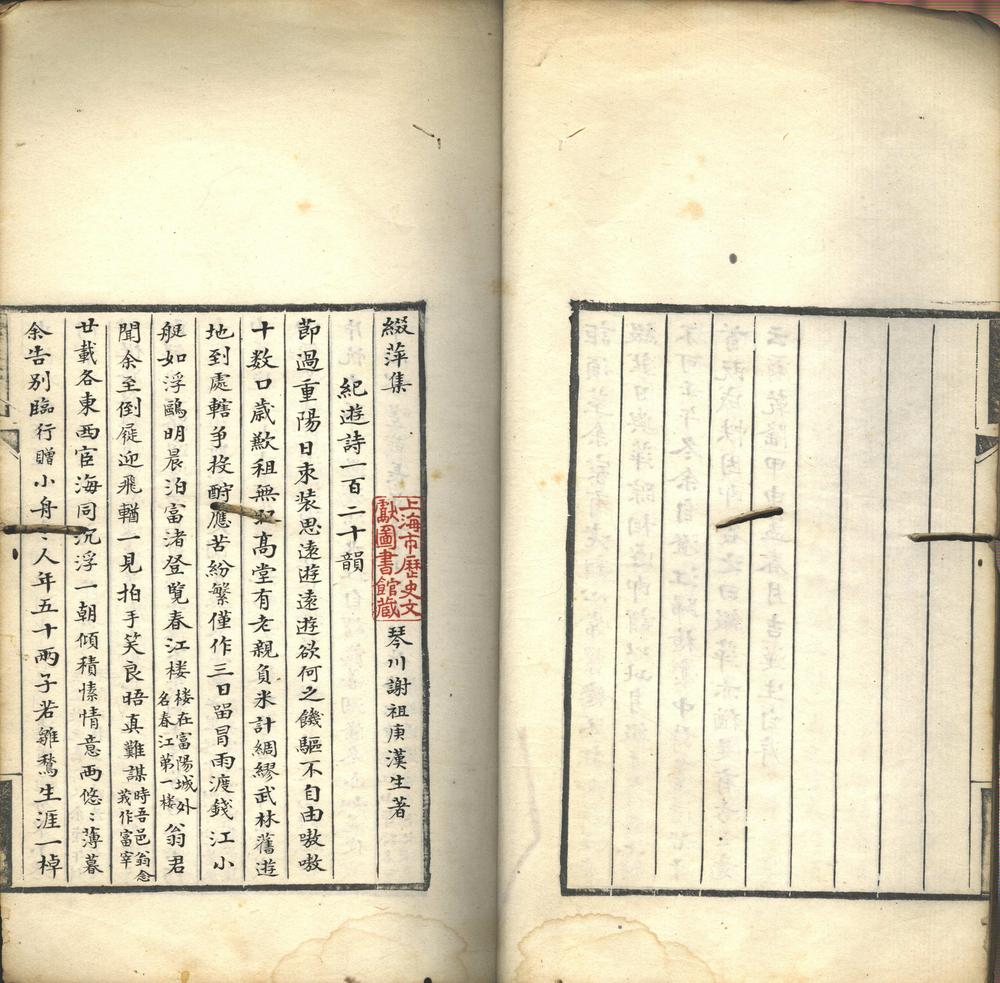 綴萍集
琴川謝祖庚漢生著
上海市歷史文獻圖書館藏
紀遊詩一百二十韻
節過重陽日束裝思遠遊遠遊欲何之饑驅不自由嗷嗷
十数口歲歉租無收高堂有老親負米計綢繆武林舊遊
地到處轄爭投酧應苦紛繁僅作三日畱冐雨渡錢江小
艇如浮鷗明晨泊富渚登覽春江楼楼在富陽城外名春江苐一楼翁君
聞余至倒屣迎飛輶一見拍手笑良晤真難謀時吾邑翁念茙作富宰
廿載各東西宦海同沉浮一朝傾積愫情意両悠〻薄暮
余告别臨行贈小舟〻人年五十兩子若雛鶖生涯一棹